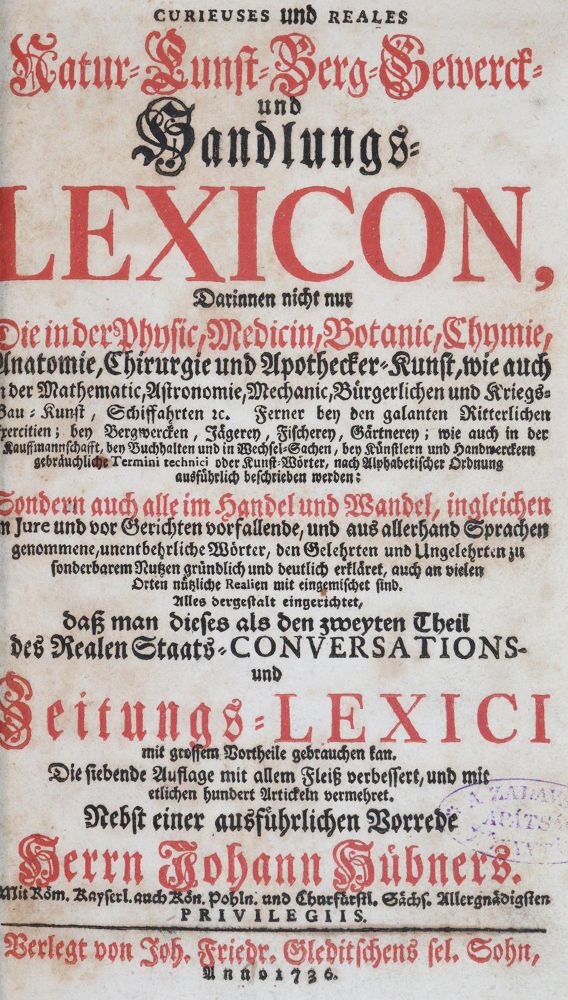 CURIEUSES und REALES
Natur-Kunst-Berg-Gewerck-
und
Handlungs-
LEXICON,
Darinnen nicht nur
Die in der Physic, Medicin, Botanic, Chymie,
Anatomie, Chirurgie und Apothecker-Kunst, wie auch
in der Mathematic, Astronomie, Mechanic, Bürgerlichen und Kriegs-
Bau-Kunst, Schiffahrten ꝛc. Ferner bey den galanten Ritterlichen
Exercitien; bey Bergwercken, Jägerey, Fischerey, Gärtnerey; wie auch in der
Kauffmannschafft, bey Buchhalten und in Wechsel-Sachen, bey Künstlern und Handwerckern
gebräuchliche Termini technici oder Kunst-Wörter, nach Alphabetischer Ordnung
ausführlich beschrieben werden;
Sondern auch alle im Handel und Wandel, ingleichen
in Jure und vor Gerichten vorfallende, und aus allerhand Sprachen
genommene, unentbehrliche Wörter, den Gelehrten und Ungelehrten zu
sonderbarem Nutzen gründlich und deutlich erkläret, auch an vielen
Orten nützliche Realien mit eingemischet sind.
Alles dergestalt eingerichtet,
daß man dieses als den zweyten Theil
des Realen Staats-CONVERSATIONS-
und
Zeitungs-LEXICI
mit grossem Vortheile gebrauchen kan.
Die siebende Auflage mit allem Fleiß verbessert, und mit
etlichen hundert Artickeln vermehret.
Nebst einer ausführlichen Vorrede
Herrn Johann Hübners.
Mit Röm. Kayserl. auch Kön. Pohln. und Churfürstl. Sächs. Allergnädigsten
PRIVILEGIIS.
Verlegt von Joh. Friedr. Gleditschens sel. Sohn,
Anno 1736.